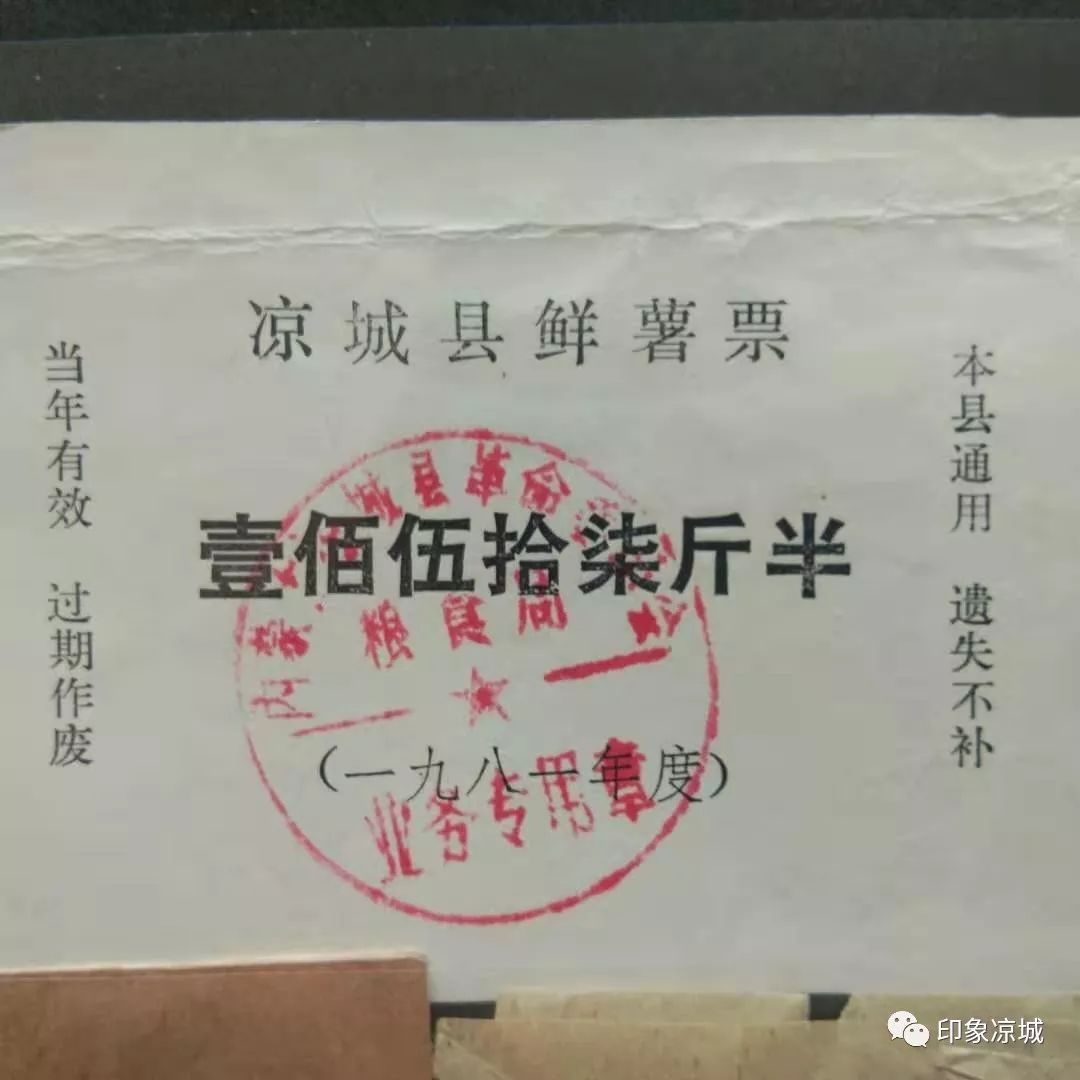 凉城县鲜薯票
当年有效 过期作废
本县通用 遗失不补
壹佰伍拾柒斤半
(一九八一年度)
内蒙 城县革命
粮食局
业务专用章
印象凉城